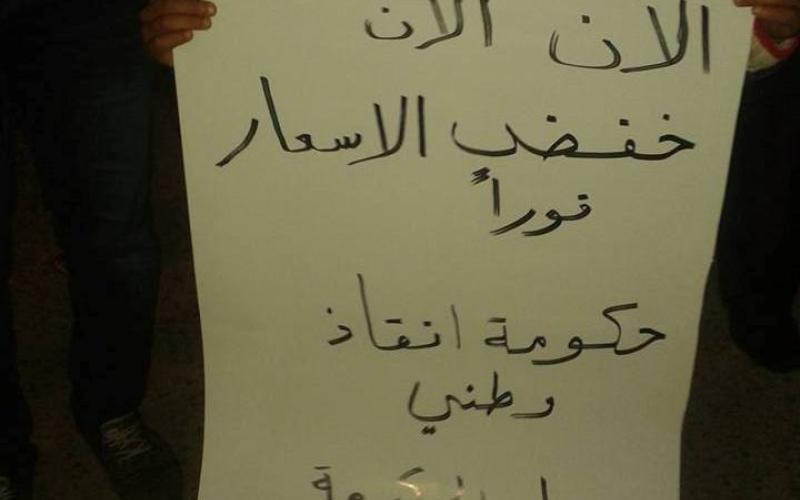 الان الان
خفض الاسعار
فوراً
حكومة انقاذ
وطني